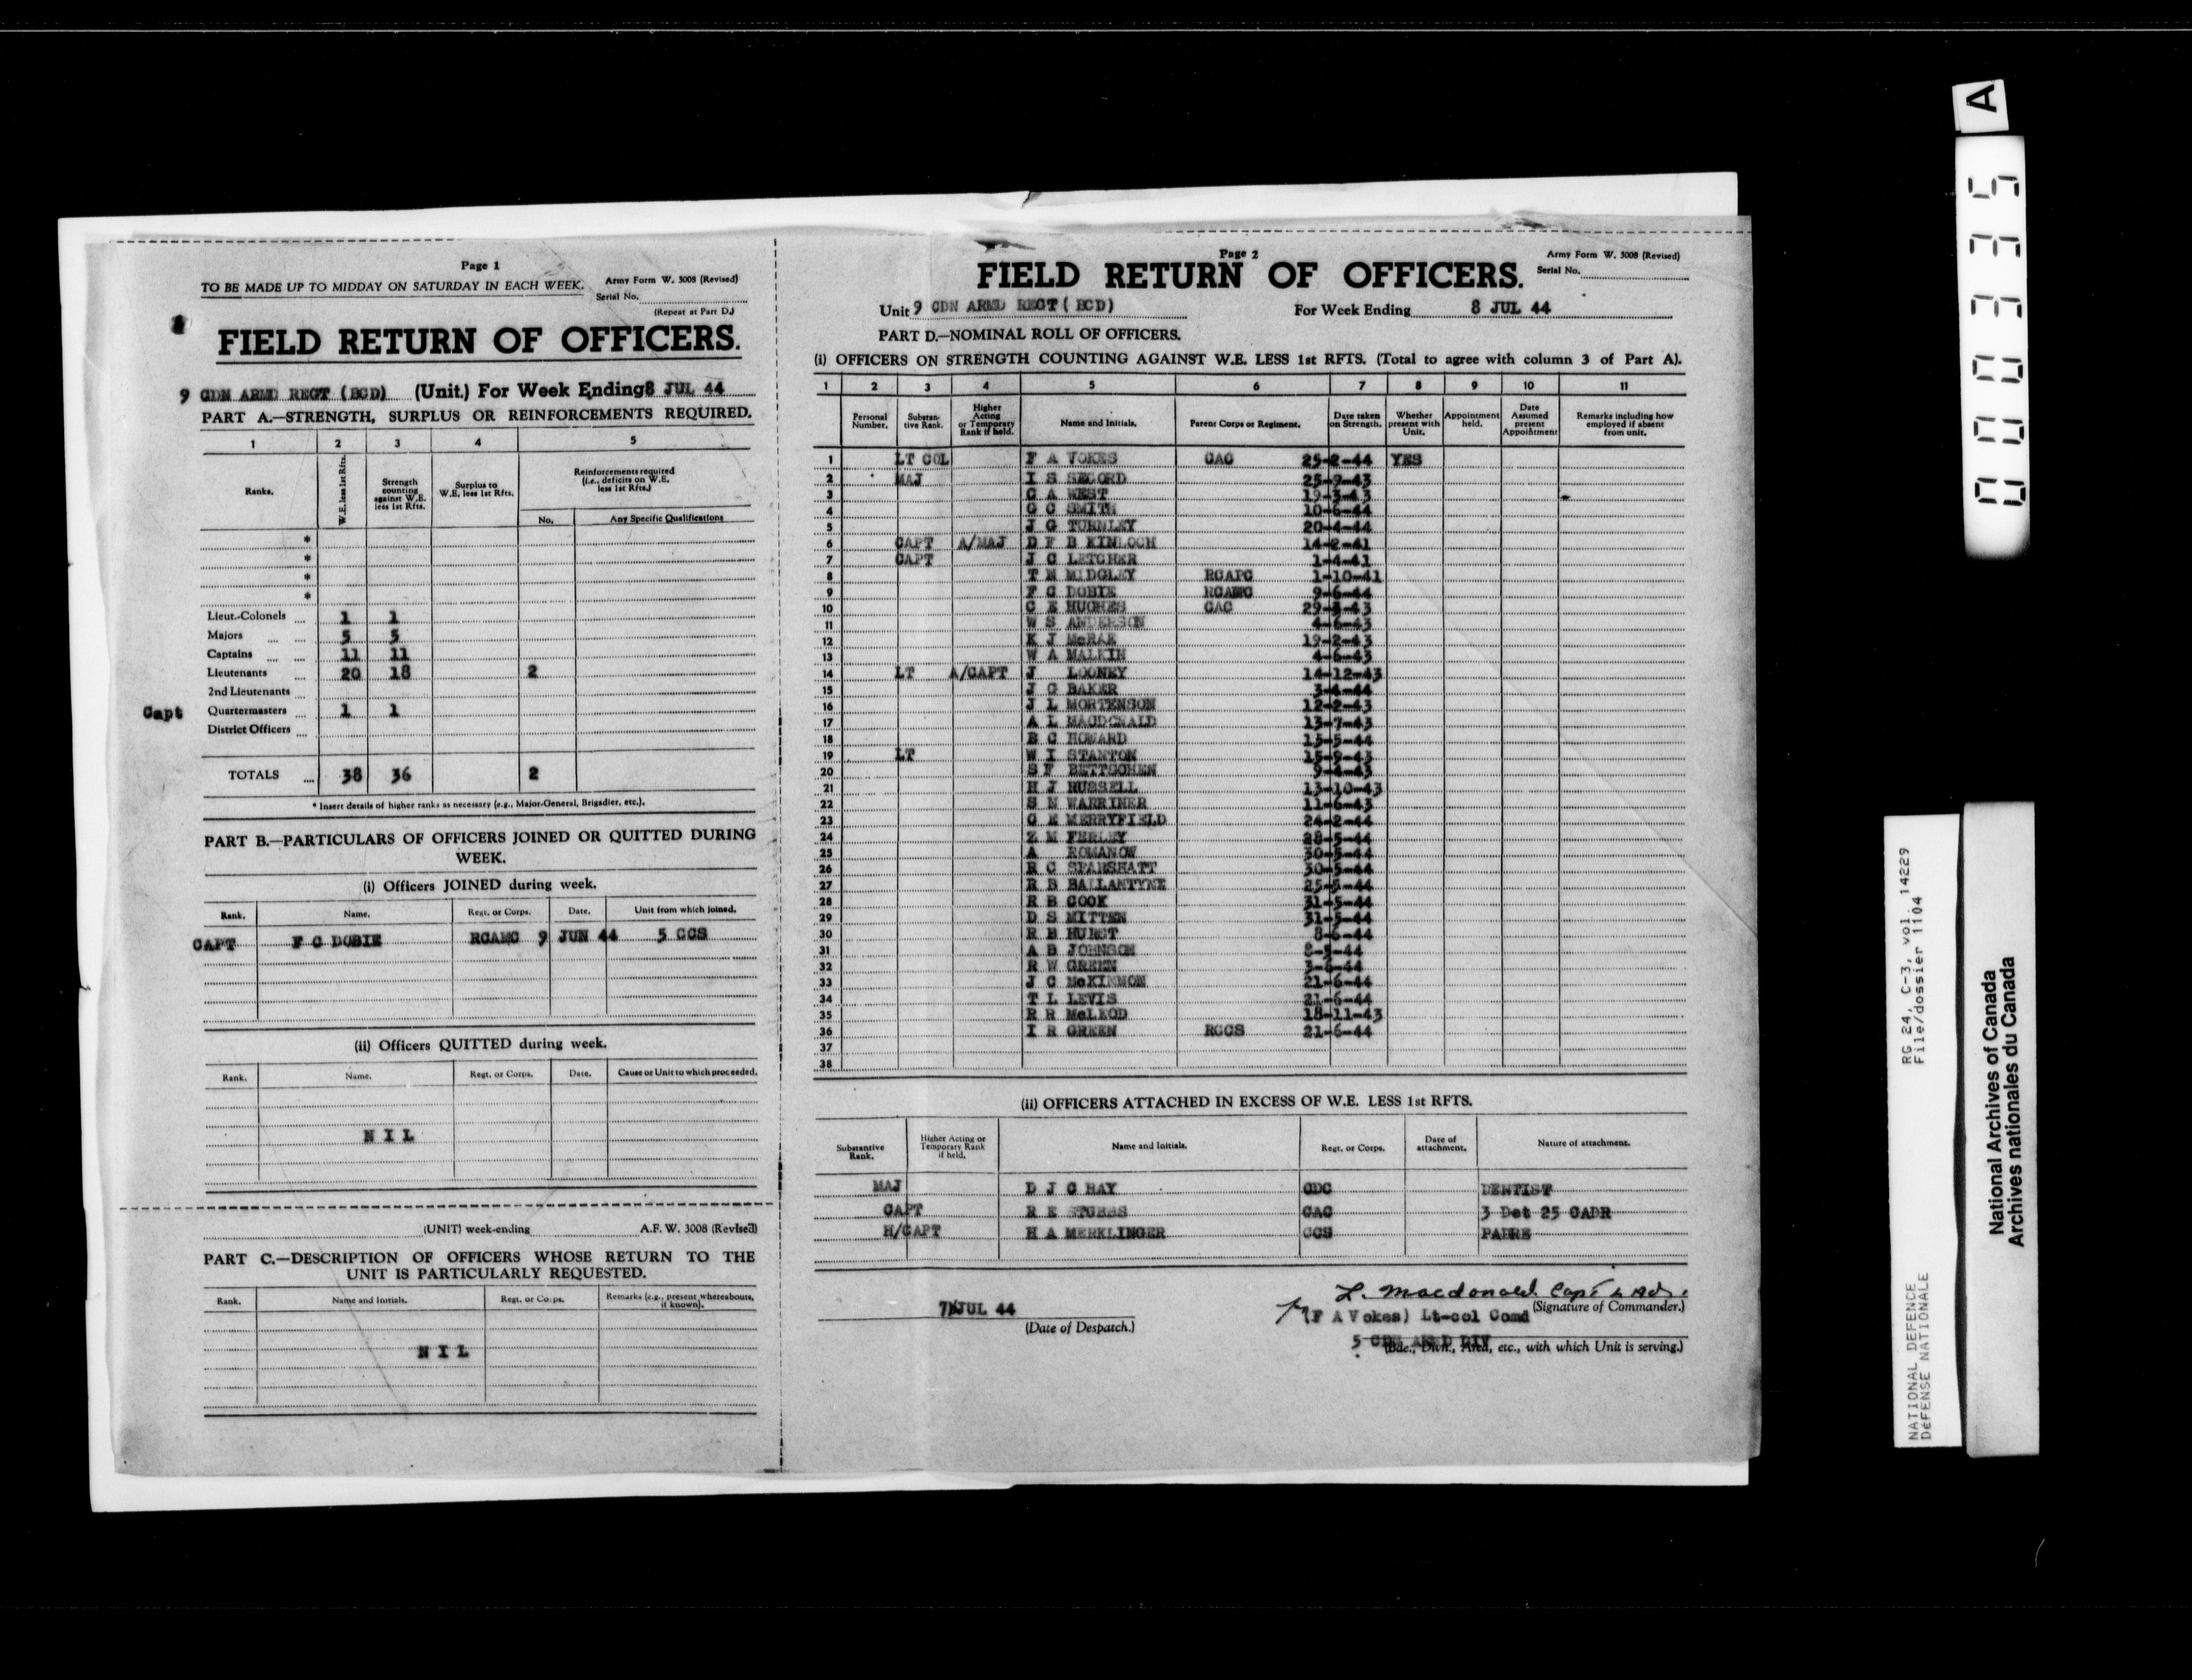 Page 1
TO BE MADE UP TO MIDDAY ON SATURDAY IN EACH WEEK.
Army Form W. 3008 (Revised)
Serial No.
(Repeat at Part D.)
FIELD RETURN OF OFFICERS.
9 CDN ARMD REGT (BCD) (Unit.) For Week Ending 8 JUL 44
PART A.—STRENGTH, SURPLUS OR REINFORCEMENTS REQUIRED.
1 2 3 4 5
Ranks.
W.E. less 1st Rfts.
Strength counting against W.E. less 1st Rfts.
Surplus to W.E. less 1st Rfts.
Reinforcements required (i.e., deficits on W.E. less 1st Rfts.)
No. Any Specific Qualifications
*
*
*
*
Lieut.-Colonels 1 1
Majors 5 5
Captains 11 11
Lieutenants 20 18 2
2nd Lieutenants
Capt Quartermasters 1 1
District Officers
TOTALS 38 36 2
* Insert details of higher ranks as necessary (e.g., Major-General, Brigadier, etc.).
PART B.—PARTICULARS OF OFFICERS JOINED OR QUITTED DURING
WEEK.
(i) Officers JOINED during week.
Rank. Name. Regt. or Corps. Date. Unit from which joined.
CAPT F C DOBIE RCAMC 9 JUN 44 5 CCS
(ii) Officers QUITTED during week.
Rank. Name. Regt. or Corps. Date. Cause or Unit to which proceeded.
N I L
(UNIT) week-ending A.F. W. 3008 (Revised)
PART C.—DESCRIPTION OF OFFICERS WHOSE RETURN TO THE
UNIT IS PARTICULARLY REQUESTED.
Rank. Name and Initials. Regt. or Corps. Remarks (e.g., present whereabouts, if known).
N I L
Page 2
Army Form W. 3008 (Revised)
FIELD RETURN OF OFFICERS.
Serial No.
Unit 9 CDN ARMD REGT (BCD) For Week Ending 8 JUL 44
PART D.—NOMINAL ROLL OF OFFICERS.
(i) OFFICERS ON STRENGTH COUNTING AGAINST W.E. LESS 1st RFTS. (Total to agree with column 3 of Part A).
1 2 3 4 5 6 7 8 9 10 11
Personal Number.
Substantive Rank.
Higher Acting or Temporary Rank if held.
Name and Initials.
Parent Corps or Regiment.
Date taken on Strength.
Whether present with Unit.
Appointment held.
Date Assumed present Appointment
Remarks including how employed if absent from unit.
1 LT COL F A VOKES CAC 25-2-44 YES
2 MAJ I S SECORD 25-9-43
3 C A WEST 19-3-43
4 G C SMITH 10-6-44
5 J G TURNLEY 20-4-44
6 CAPT A/MAJ D F B KINLOCH 14-2-41
7 CAPT J C LETCHER 1-4-41
8 T N MIDGLEY RCAPC 1-10-41
9 F C DOBIE RCAMC 9-6-44
10 C E HUGHES CAC 29- -43
11 W S ANDERSON 4-6-43
12 K J McRAE 19-2-43
13 W A MALKIN 4-6-43
14 LT A/CAPT J LOONEY 14-12-43
15 J G BAKER 3-4-44
16 J L MORTENSON 12-2-43
17 A L MACDONALD 13-7-43
18 B C HOWARD 13-5-44
19 LT W I STANTON 15-9-43
20 S F BETTSCHEN 9-4-43
21 H J RUSSELL 13-10-43
22 S N WARRINER 11-6-43
23 G E MERRYFIELD 24-2-44
24 Z M FERLEY 28-5-44
25 A ROMANOW 30-5-44
26 R C SPARSHATT 30-5-44
27 R B BALLANTYNE 25-5-44
28 R B COOK 31-5-44
29 D S MITTEN 31-5-44
30 R B HURST 8-6-44
31 A B JOHNSON -44
32 R W GREEN 3-6-44
33 J C McKINNON 21-6-44
34 T L LEVIS 21-6-44
35 R R McLEOD 18-11-43
36 I R GREEN RCCS 21-6-44
37
38
(ii) OFFICERS ATTACHED IN EXCESS OF W.E. LESS 1st RFTS.
Substantive Rank. Higher Acting or Temporary Rank if held. Name and Initials. Regt. or Corps. Date of attachment. Nature of attachment.
MAJ D J C HAY CDC DENTIST
CAPT R E STUBBS CAC 3 Det 25 CADR
H/CAPT H A MERKLINGER CCS PADRE
L. Macdonald Capt & Adj.
(Signature of Commander.)
7 JUL 44
(Date of Despatch.)
(F A Vokes) Lt-col Comd
5 CDN ARMD DIV
(Bde., Divn., Area, etc., with which Unit is serving.)
000335 A
RG 24, C-3, vol. 14229
File/dossier 1104
NATIONAL DEFENCE
DéFENSE NATIONALE
National Archives of Canada
Archives nationales du Canada